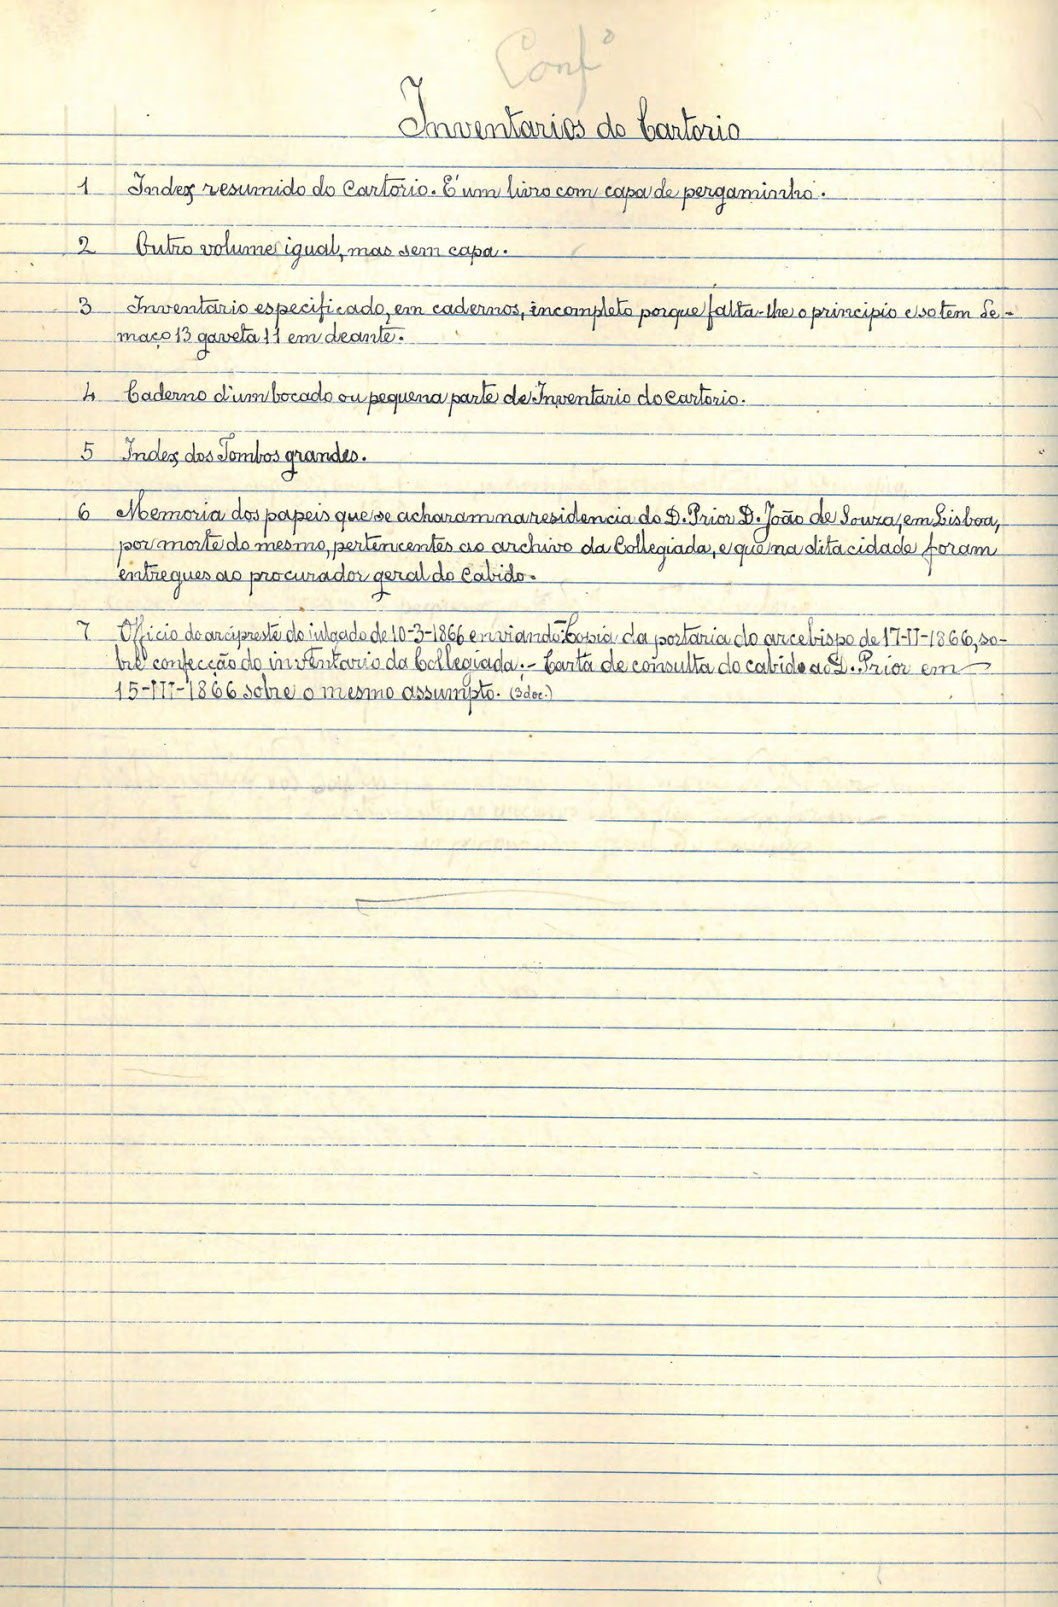 Confº
Inventarios do Cartorio
1 Index resumido do Cartorio. E' um livro com capa de pergaminho.
2 Outro volume igual, mas sem capa.
3 Inventario especificado, em cadernos, incompleto porque falta-lhe o principio e so tem de-
maço 13 gaveta 11 em deante.
4 Caderno d'um bocado ou pequena parte de Inventario do Cartorio.
5 Index dos Tombos grandes.
6 Memoria dos papeis que se acharam na residencia do D. Prior D. João de Souza, em Lisboa,
por morte do mesmo, pertencentes ao archivo da Collegiada, e que na dita cidade foram
entregues ao procurador geral do Cabido.
7 Officio do arcipreste do julgado de 10-3-1866 enviando Copia da portaria do arcebispo de 17-II-1866, so-
bre confecção do inventario da Collegiada. - Carta de consulta do cabido ao D. Prior em
15-III-1866 sobre o mesmo assumpto. (3 doc.)